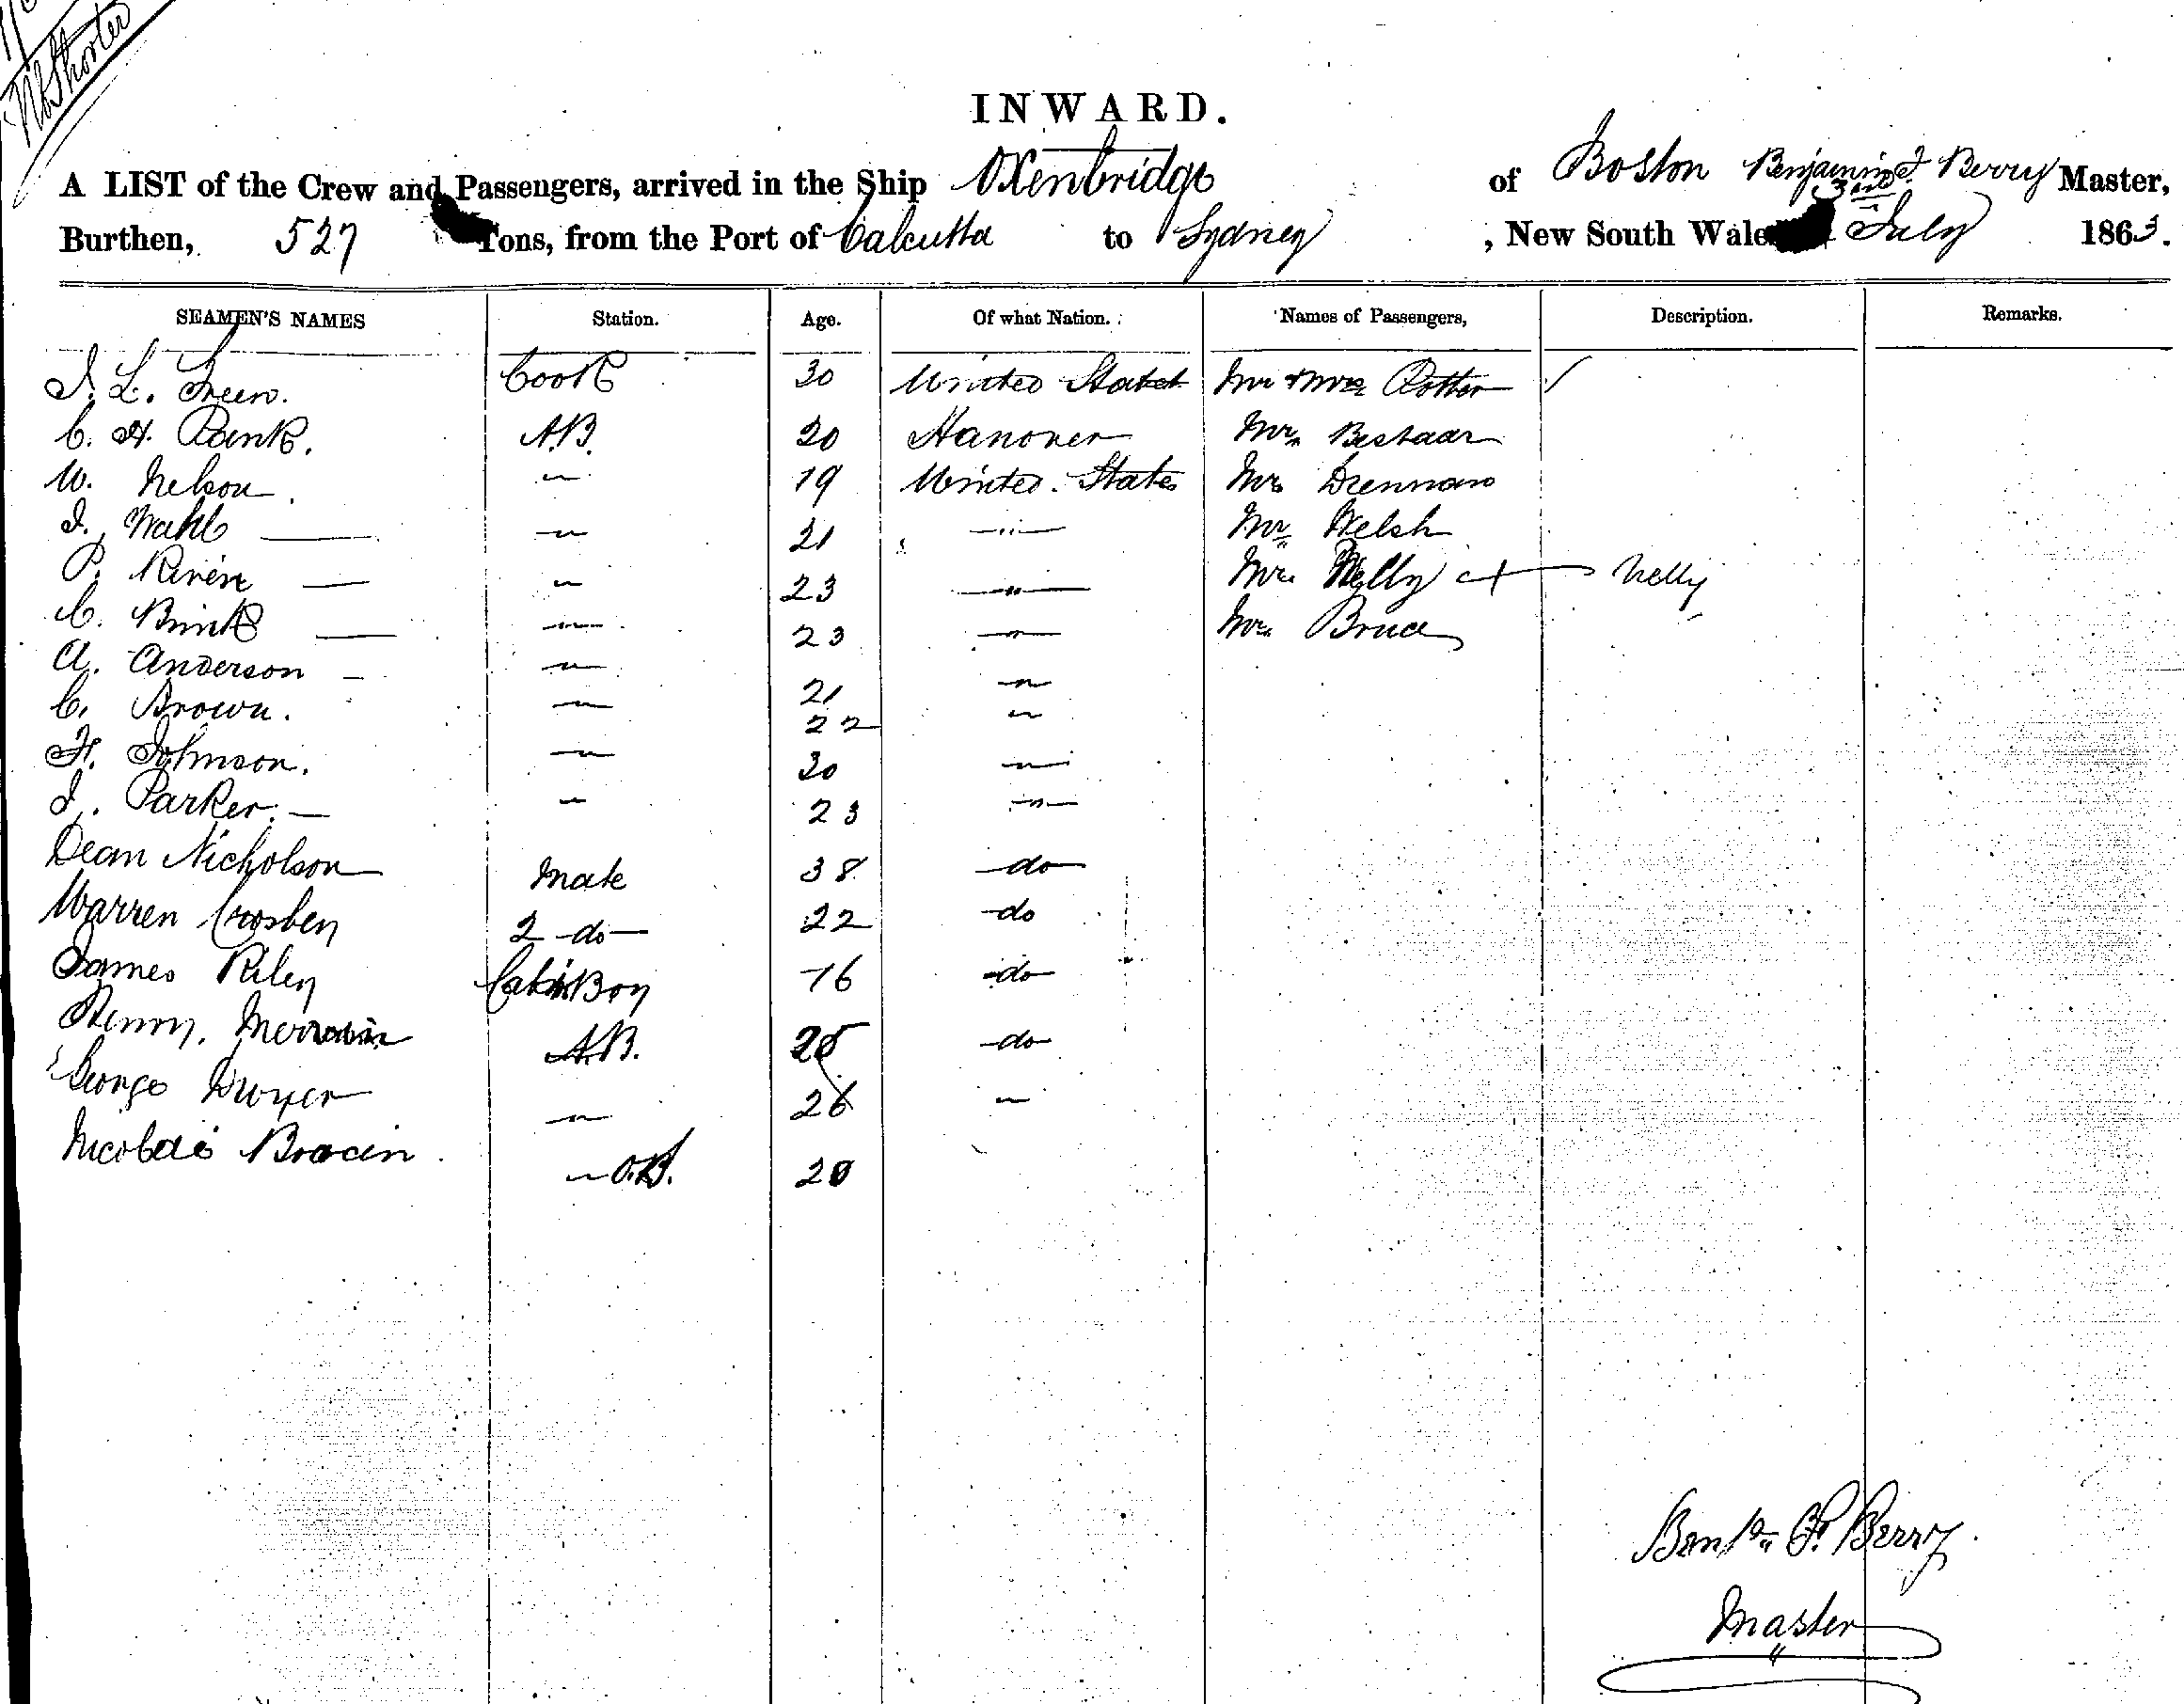 INWARD.
A LIST of the Crew and Passengers, arrived in the Ship Oxenbridge of Boston Benjamin Berry Master,
Burthen, 527 Tons, from the Port of Calcutta to Sydney, New South Wales July 1863.
SEAMEN'S NAMES Station. Age. Of what Nation. Names of Passengers, Description. Remarks.
J. L. Green. Cook 30 United States Mr & Mrs
C. H. Rank. A.B. 20 Hanover Mr
W. Nelson. " 19 United States Mr Drennan
J. Wahl " 21 " Mr Welsh
P. " 23 " Mr Nelly Nelly
C. Brink " 23 " Mr Bruce
A. Anderson " 21 "
C. Brown. " 22 "
H. Johnson. " 30 "
J. Parker. " 23 "
Dean Nicholson Mate 38 do
Warren Crosbey 2 do 22 do
James Riley Cabin Boy 16 do
Henry A.B. 25 do
George " 26 "
20
Benjn Berry
Master